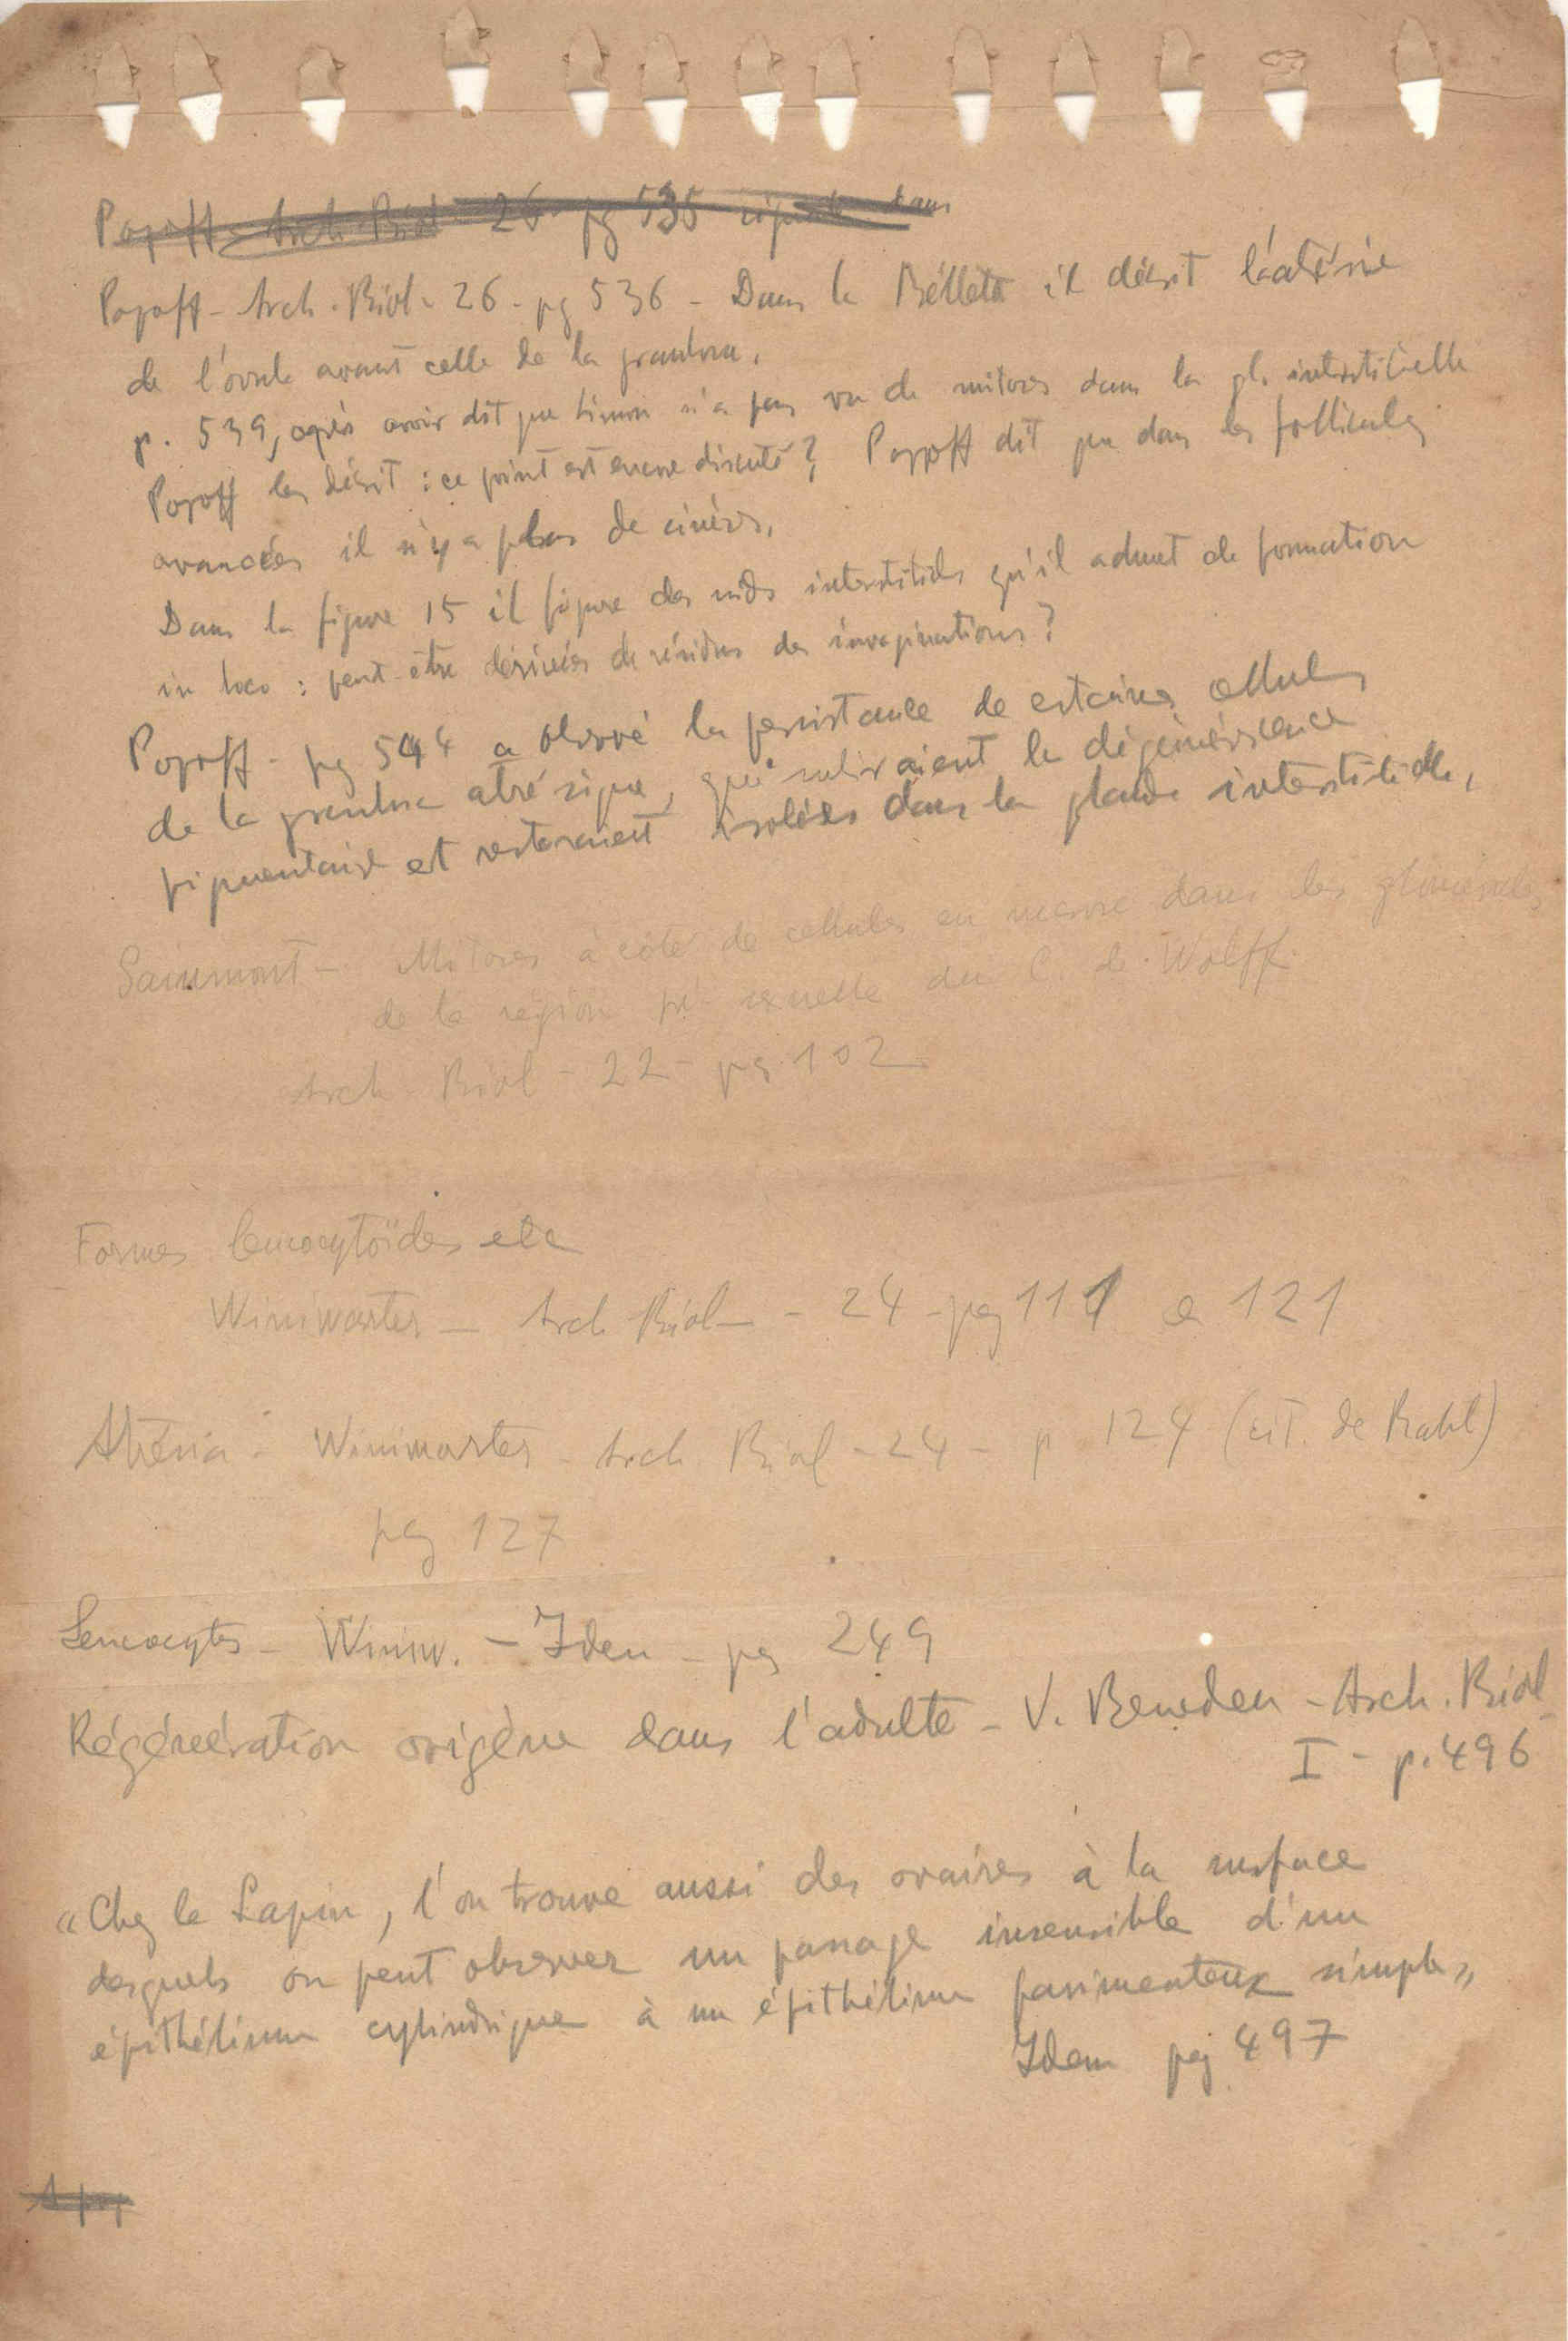 Popoff - Arch. Biol. 26 - pg 535 signale dans
Popoff - Arch. Biol. 26 - pg 536 - Dans la Bélléta il décrit l'atrésie
de l'ovule avant celle de la granulosa.
p. 539, après avoir dit que Limon n'a pas vu de mitoses dans la gl. interstitielle
Popoff les décrit : ce point est encore discuté ? Popoff dit que dans les follicules
avancées il n'y a plus de cinèses.
Dans la figure 15 il figure des nids interstitiels qu'il admet de formation
in loco : peut-être dérivées de résidus des invaginations ?
Popoff - pg 544 a observé la persistance de certaines cellules
de la granulosa atrésique, qui subiraient la dégénérescence
pigmentaire et resteraient isolées dans la glande interstitielle.
Sainmont - Mitoses à côté de cellules en de la région du C. de Wolff.
Arch. Biol - 22 - pg. 102
Formes leucocytoïdes etc
Winiwarter - Arch Biol - 24 - pg 111 a 121
Atrésia - Winiwarter - Arch. Biol - 24 - p 124 (cit. de Rabl)
pag 127
Leucocytes - Winiw. - Idem - pg 249
Régénération ovigène dans l'adulte - V. Beneden - Arch. Biol
I - p. 496
"Chez le Lapin, l'on trouve aussi des ovaires à la surface
desquels on peut observer un passage insensible d'un
épithélium cylindrique à un épithélium pavimenteux simple"
Idem pag 497